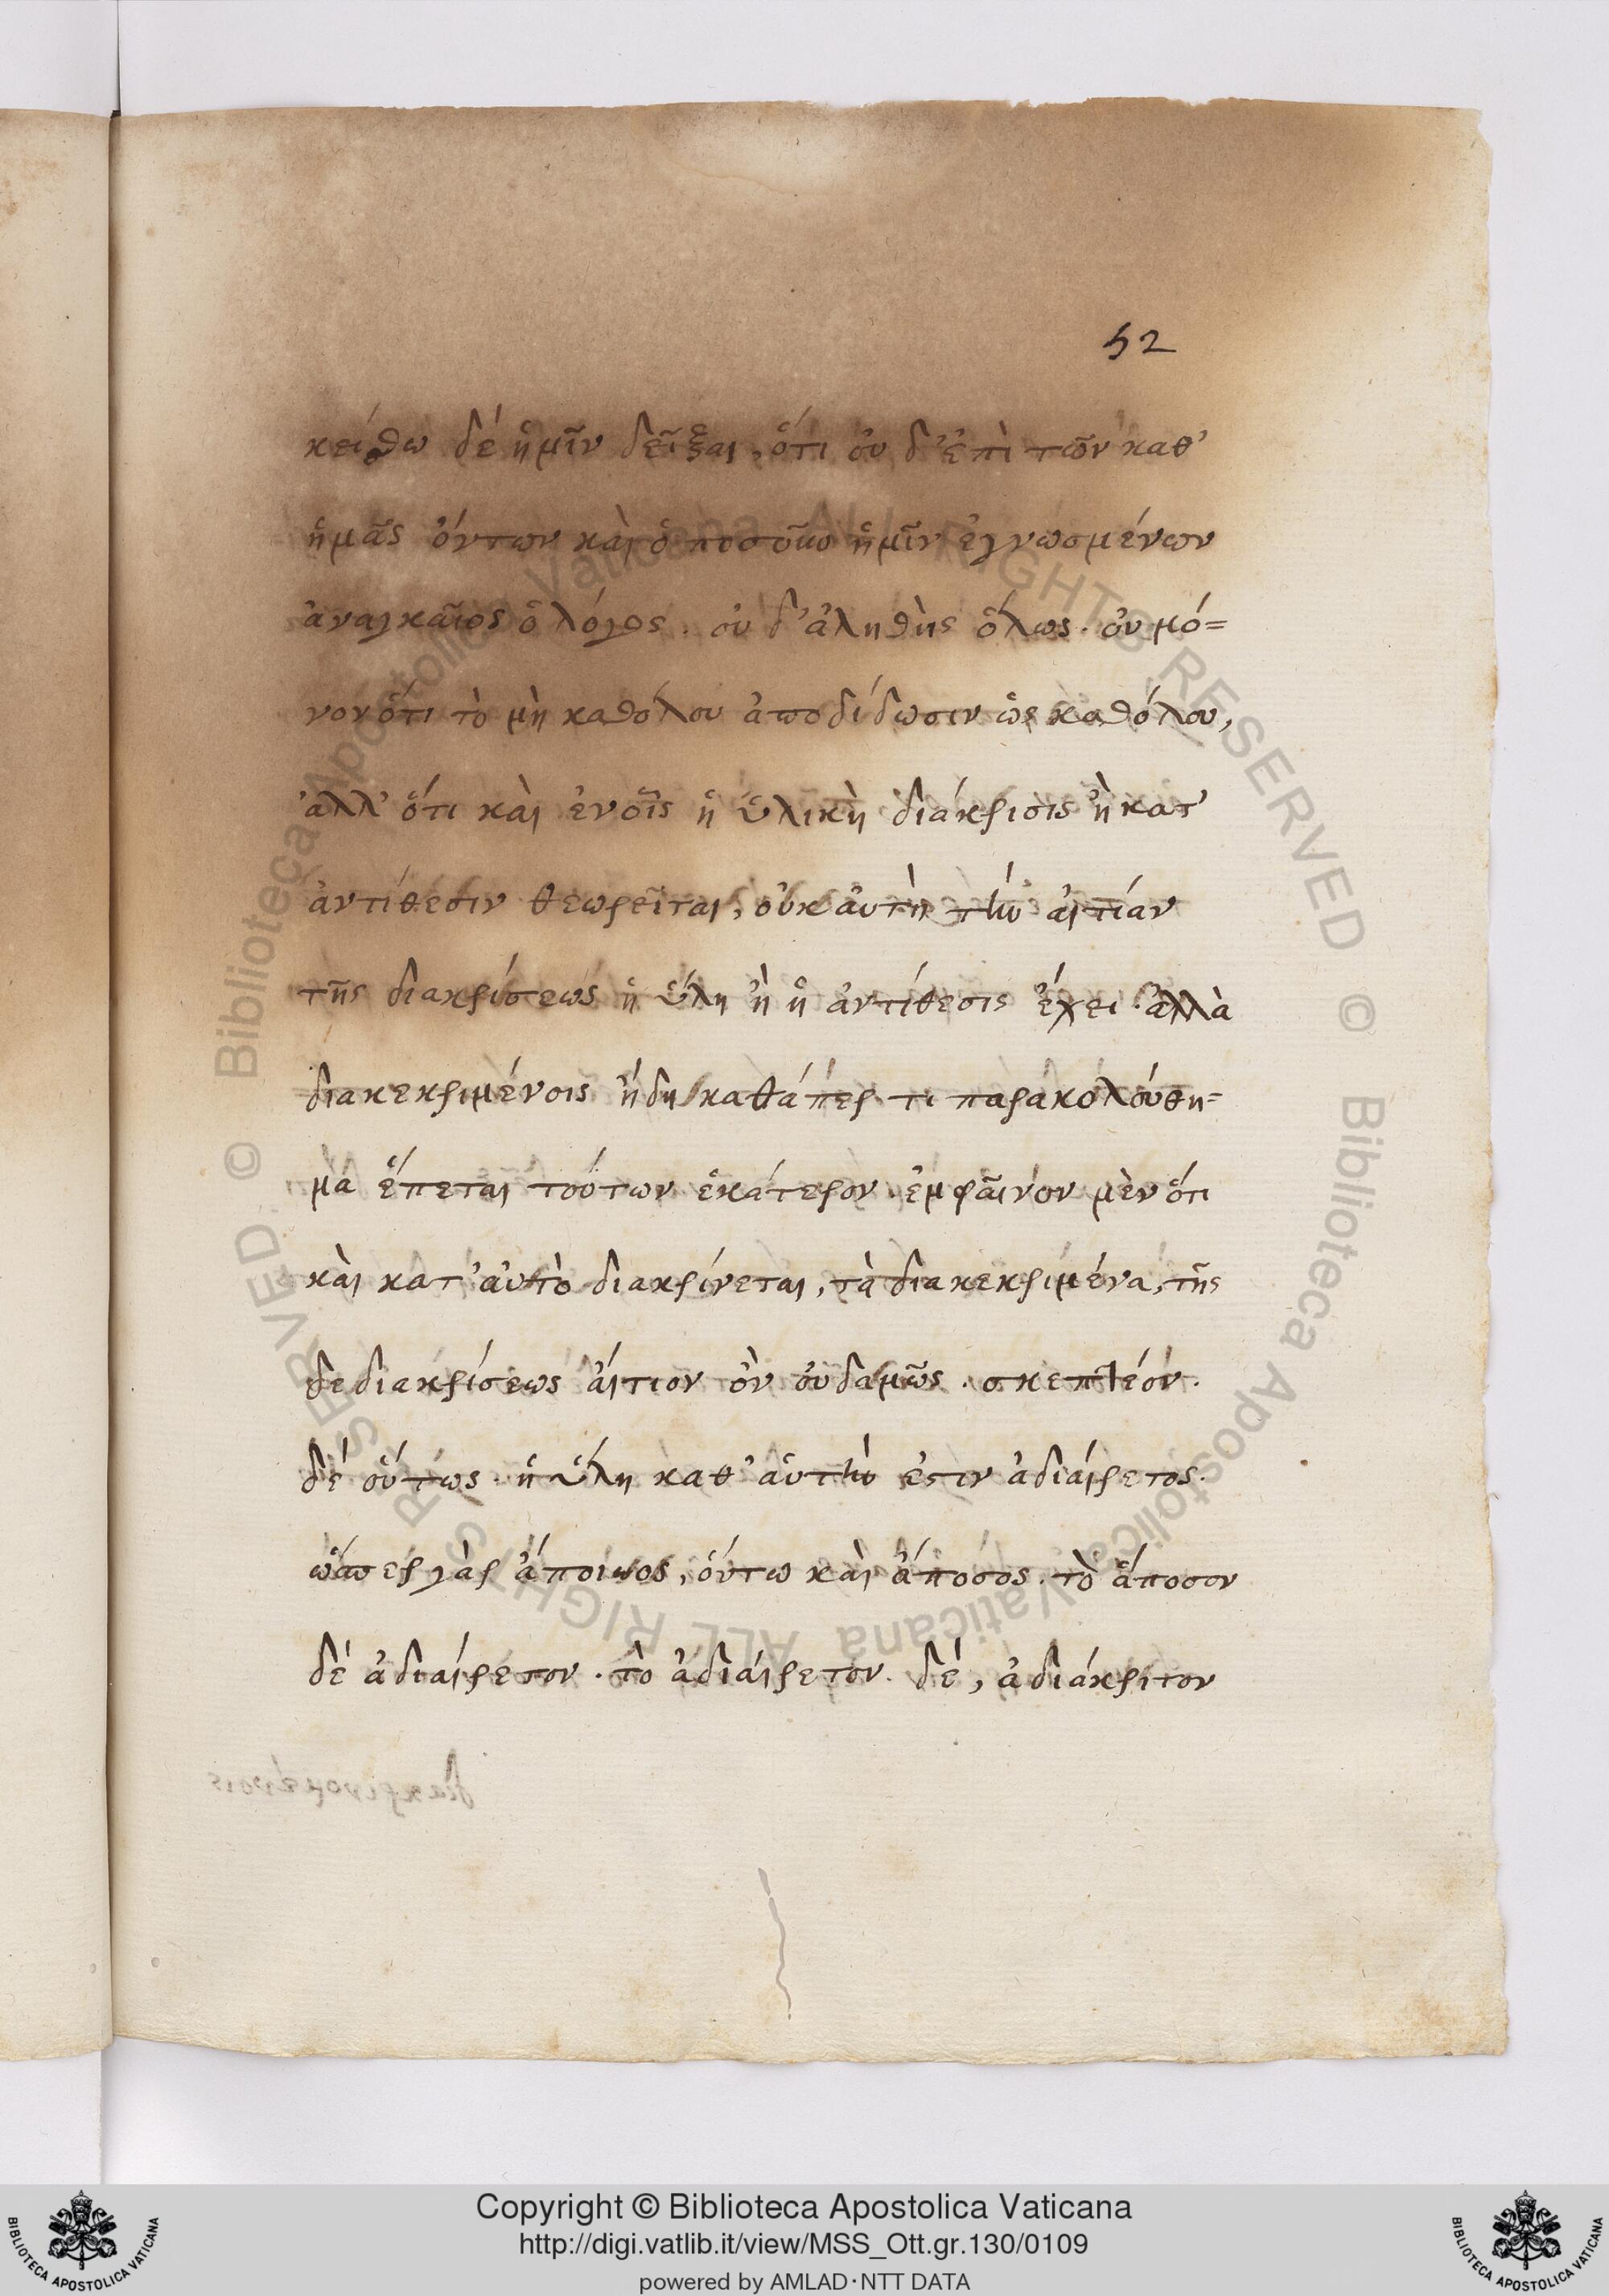 52
κείσθω δέ ἡμῖν δεῖξαι, ὅτι οὐ δ' ἐπὶ τῶν καθ'
ἡμᾶς ὄντων καὶ ὁποσοῦν ἡμῖν ἐγνωσμένων
ἀναγκαῖος ὁ λόγος. οὐ δ' ἀληθὴς ὅλως. οὐ μό=
νον ὅτι τὸ μὴ καθόλου ἀποδίδωσιν ὡς καθόλου,
ἀλλ' ὅτι καὶ ἐν οἷς ἡ ὑλικὴ διάκρισις ἢ κατ'
ἀντίθεσιν θεωρεῖται, οὐκ αὐτὴ τὴν αἰτίαν
τῆς διακρίσεως ἡ ὕλη ἢ ἡ ἀντίθεσις ἔχει. ἀλλὰ
διακεκριμένοις ἤδη καθάπερ τι παρακολούθη=
μα ἕπεται τούτων ἑκάτερον. ἐμφαῖνον μὲν ὅτι
καὶ κατ' αὐτὸ διακρίνεται, τὰ διακεκριμένα, τῆς
δε διακρίσεως αἴτιον ὂν οὐδαμῶς. σκεπτέον.
δέ οὕτως. ἡ ὕλη καθ' αὑτὴν ἐστιν ἀδιαίρετος.
ὥσπερ γὰρ ἄποιος, οὕτω καὶ ἄποσος. τὸ ἄποσον
δέ ἀδιαίρετον. τὸ ἀδιαίρετον. δέ, ἀδιάκριτον
διακρινομένοις
Copyright © Biblioteca Apostolica Vaticana
http://digi.vatlib.it/view/MSS_Ott.gr.130/0109
powered by AMLAD·NTT DATA
BIBLIOTECA APOSTOLICA VATICANA
BIBLIOTECA APOSTOLICA VATICANA
© Biblioteca Apostolica Vaticana ALL RIGHTS RESERVED © Biblioteca Apostolica Vaticana ALL RIGHTS RESERVED